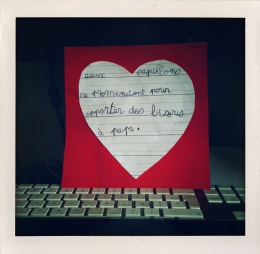 deux papillons
se promenaient pour
apporter des bisous
à papi.